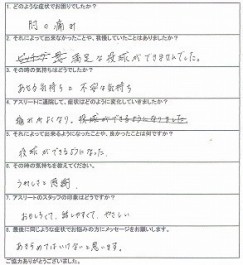 1. どのような症状でお困りでしたか？
肘の痛み
2. それによって出来なかったことや、我慢していたことはありましたか？
満足な投球ができませんでした。
3. その時の気持ちはどうでしたか？
あせる気持ちと不安な気持ち
4. アスリートに通院して、症状はどのように変化していきましたか？
痛みがなくなり、投球ができるようになりました
5. それによって出来るようになったことや、良かったことは何ですか？
投球ができるようになった
6. その時の気持ちを教えてください。
うれしさと感謝
7. アスリートのスタッフの印象はどうですか？
おもしろくて、話しやすくて、やさしい
8. 最後に同じような症状でお悩みの方にメッセージをお願いします。
あきらめてはいけないと思います。
ご協力ありがとうございました。